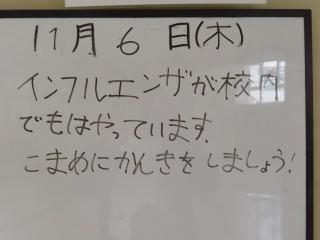 11月6日(木)
インフルエンザが校内
でもはやっています.
こまめにかんきをしましょう!